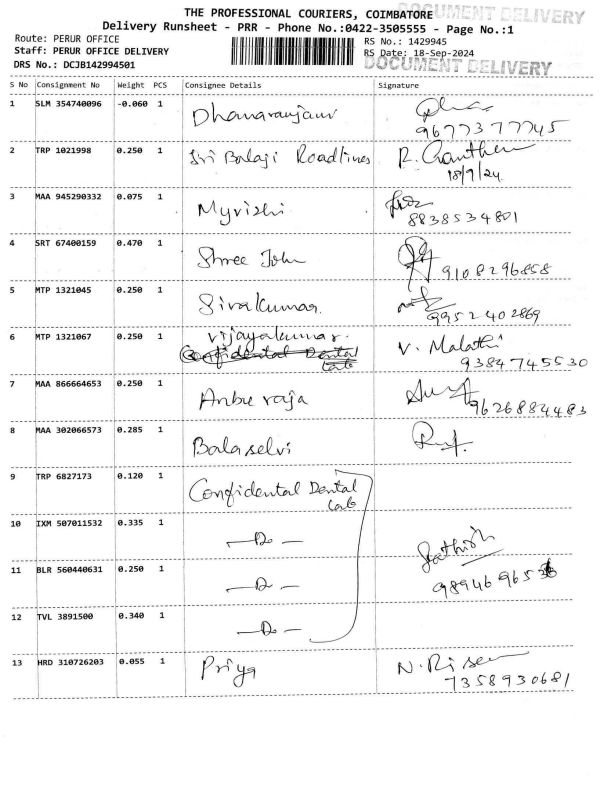 THE PROFESSIONAL COURIERS, COIMBATORE
DOCUMENT DELIVERY
Delivery Runsheet - PRR - Phone No.:0422-3505555 - Page No.:1
Route: PERUR OFFICE
RS No.: 1429945
Staff: PERUR OFFICE DELIVERY
RS Date: 18-Sep-2024
DRS No.: DCJB142994501
DOCUMENT DELIVERY
S No Consignment No Weight PCS Consignee Details Signature
1 SLM 354740096 -0.060 1 Dhanaranjani
9677377745
2 TRP 1021998 0.250 1 Sri Balaji Roadlines
18/9/24
3 MAA 945290332 0.075 1 Myvizhi
8838534801
4 SRT 67400159 0.470 1 Shree John
9108296858
5 MTP 1321045 0.250 1 Sivakumar
9952402869
6 MTP 1321067 0.250 1 Vijayakumar V. Malathi
Confidental Dental
Lab
9384745530
7 MAA 866664653 0.250 1 Anbu raja
9626884483
8 MAA 302066573 0.285 1 Balaselvi
9 TRP 6827173 0.120 1 Confidental Dental
Lab
10 IXM 507011532 0.335 1 — Do —
Sathish
11 BLR 560440631 0.250 1 — Do —
12 TVL 3891500 0.340 1 — Do —
13 HRD 310726203 0.055 1 Priya
7358930681